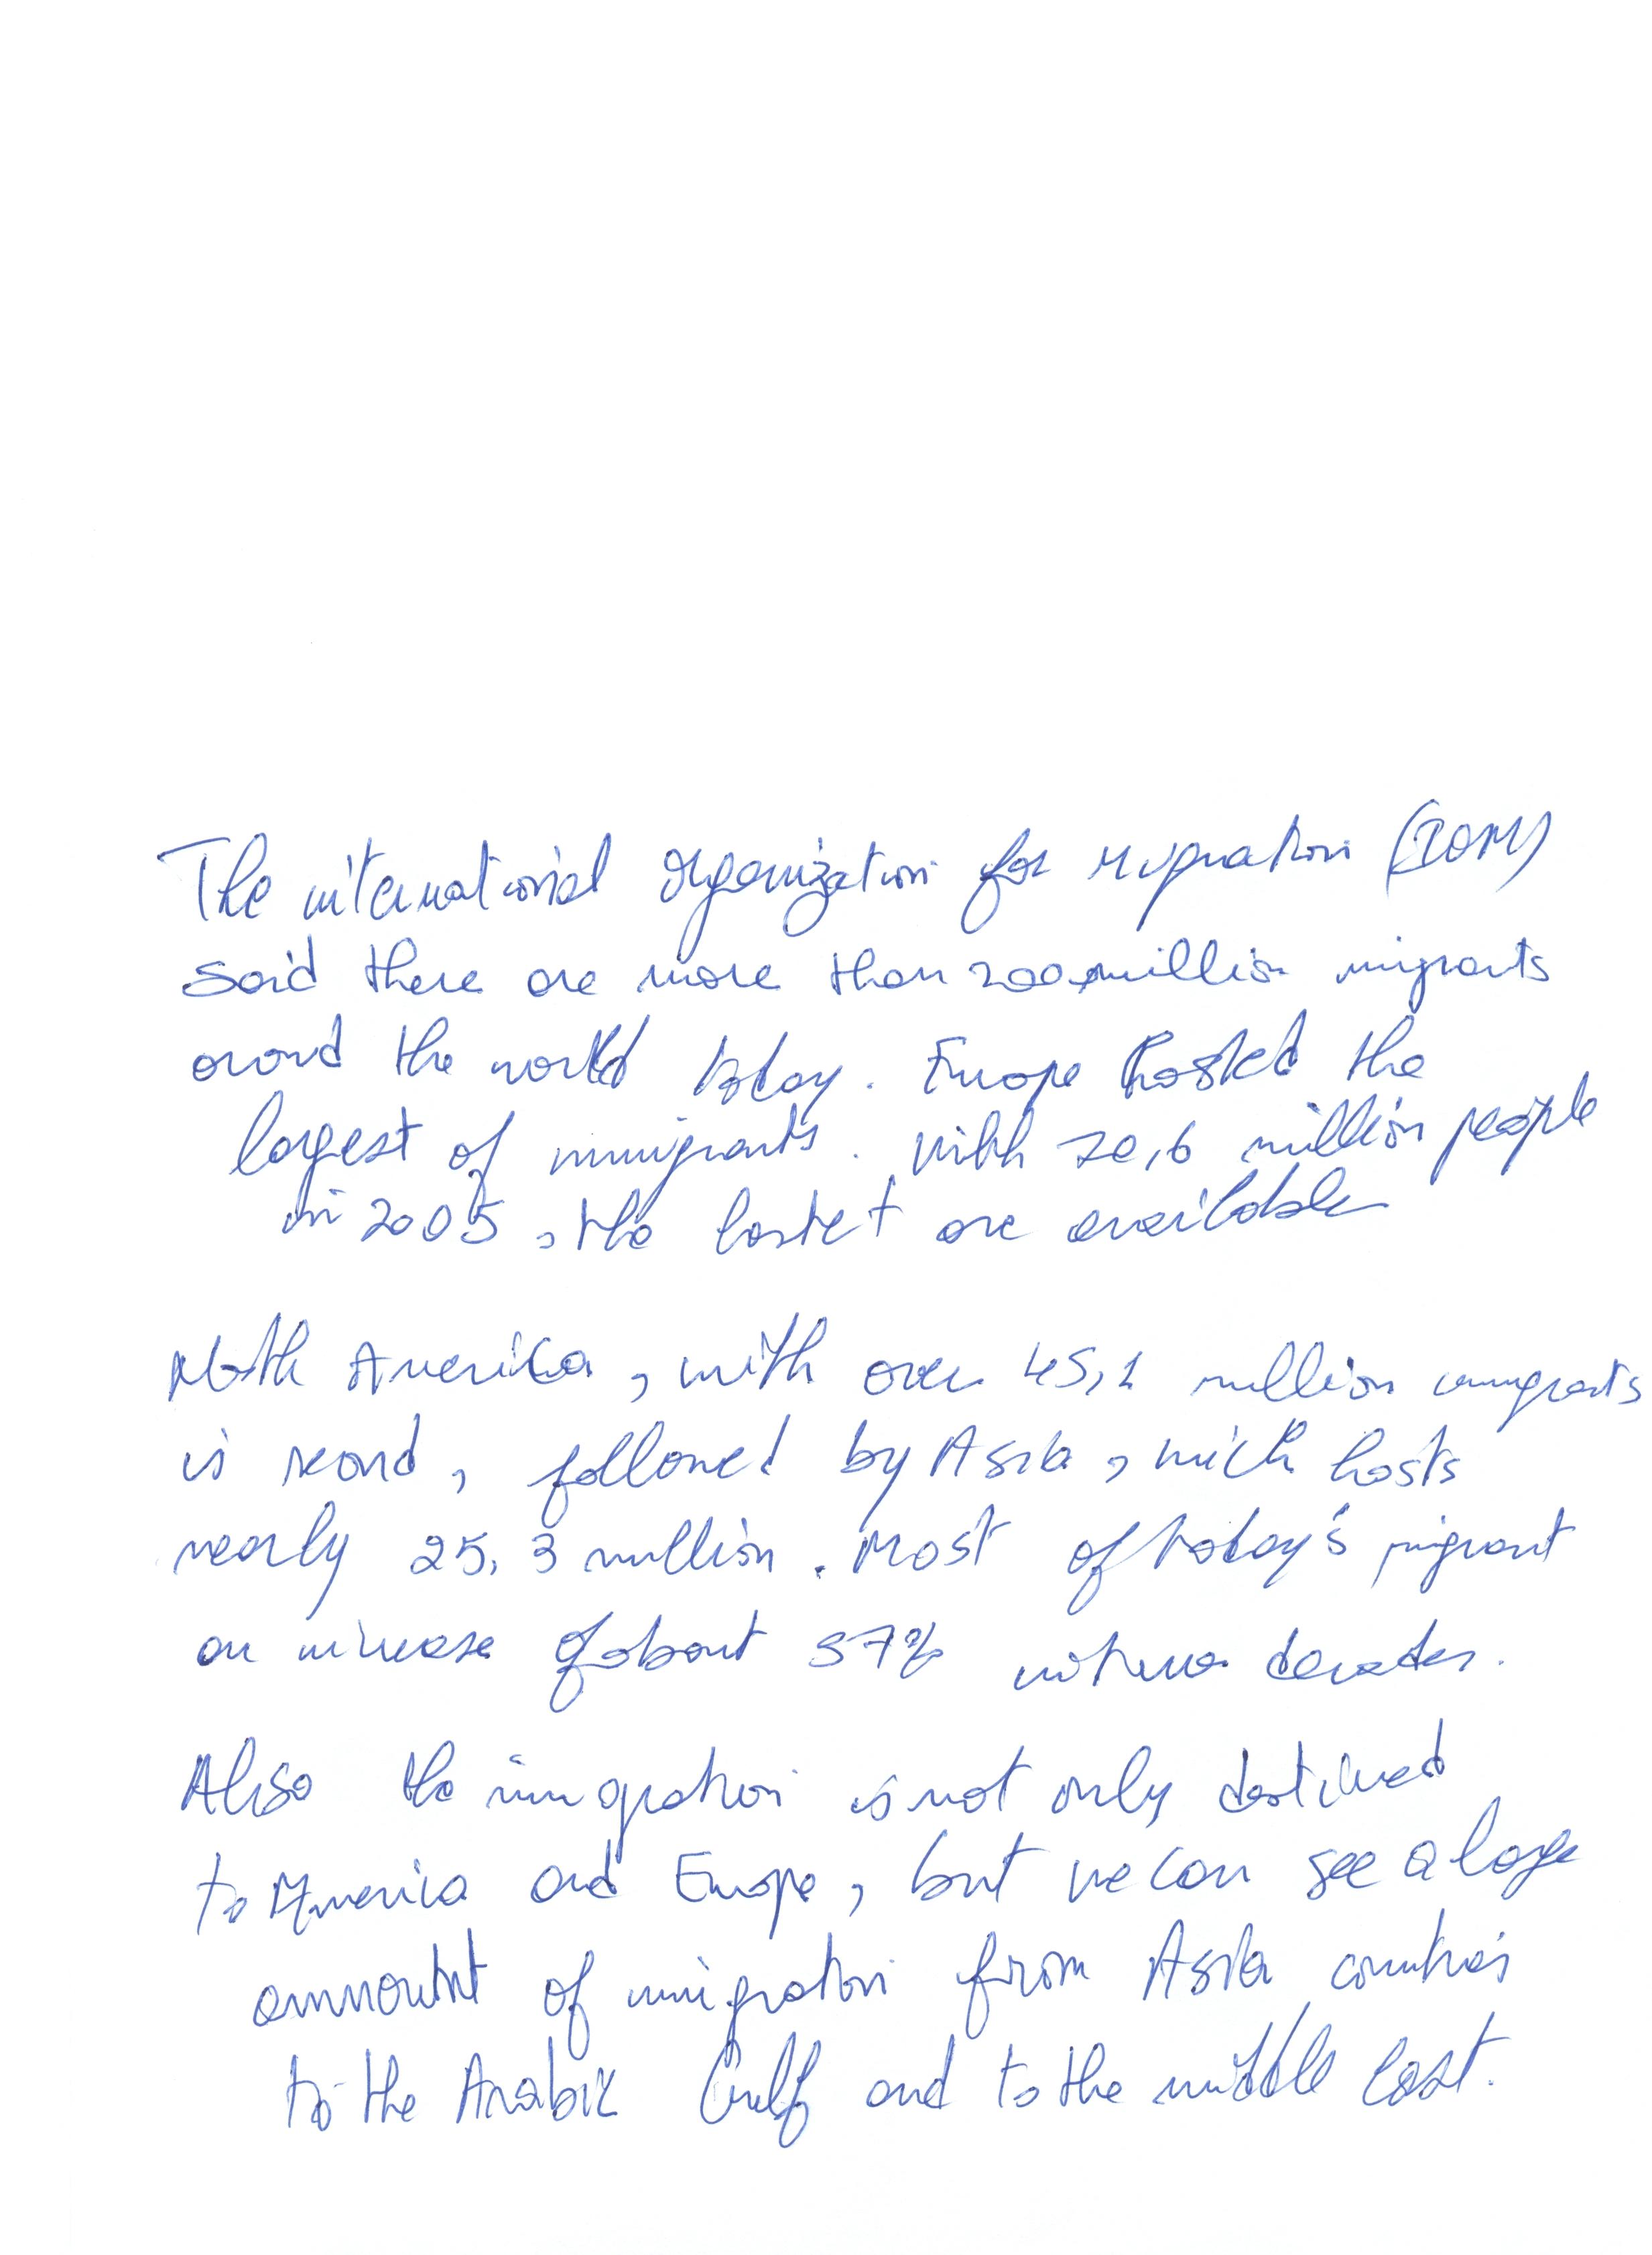 The international organization for migration (IOM)
said there are more than 200 million migrants
around the world today. Europe hosted the
largest of immigrants. With 70,6 million people
in 2005, the lastet are available
North America, with over 45,1 million immigrants
is second, followed by Asia, wich hosts
nearly 25,3 million. Most of today's migrant
an increase of about 37% decades.
Also the immigration is not only destined
to America and Europe, but we can see a large
ammountnt of immigration from Asia countries
to the Arabic Gulf and to the middle east.